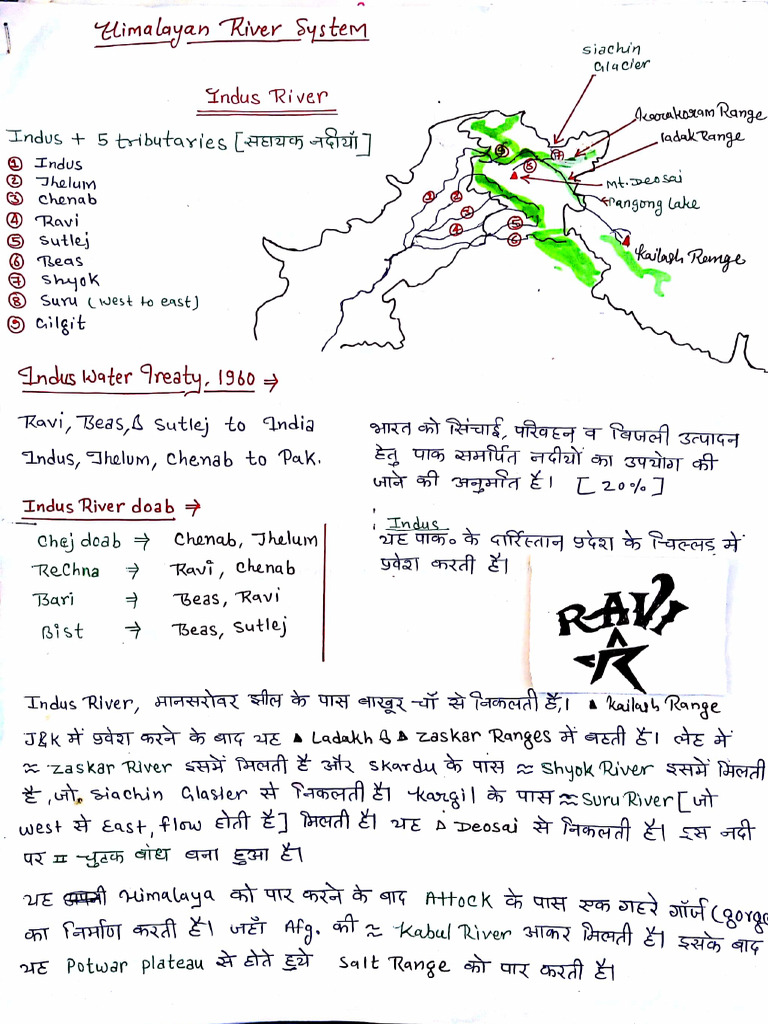 Himalayan River System
Indus River
Indus + 5 tributaries [सहायक नदीयाँ]
① Indus
② Jhelum
③ Chenab
④ Ravi
⑤ Sutlej
⑥ Beas
⑦ Shyok
⑧ Suru (west to east)
⑨ Gilgit
Siachin
Glacier
Karakoram Range
ladak Range
Mt. Deosai
Pangong Lake
Kailash Range
9
7
8
1
2
3
4
5
6
Indus Water Treaty, 1960 ⇒
Ravi, Beas, & Sutlej to India
Indus, Jhelum, Chenab to Pak.
भारत को सिंचाई, परिवहन व बिजली उत्पादन
हेतु पाक समर्पित नदीयों का उपयोग की
जाने की अनुमति है। [20%]
Indus River doab ⇒
Chej doab ⇒ Chenab, Jhelum
Rechna ⇒ Ravi, Chenab
Bari ⇒ Beas, Ravi
Bist ⇒ Beas, Sutlej
Indus
यह पाक० के दार्दिस्तान प्रदेश के चिल्लड़ में
प्रवेश करती है।
RAVI
R
Indus River, मानसरोवर झील के पास बाखूर-चॉ से निकलती है,। ▲ Kailash Range
J&K में प्रवेश करने के बाद यह ▲ Ladakh & ▲ Zaskar Ranges में बहती है। लेह में
≈ Zaskar River इसमें मिलती है और Skardu के पास ≈ Shyok River इसमें मिलती
है, जो. Siachin Glasier से निकलती है। Kargil के पास ≈ Suru River [जो
west से East, flow होती है] मिलती है। यह △ Deosai से निकलती है। इस नदी
पर II चुटक बांध बना हुआ है।
यह Himalaya को पार करने के बाद Attock के पास एक गहरे गॉर्ज (gorge
का निर्माण करती है। जहाँ Afg. की ≈ Kabul River आकर मिलती है। इसके बाद
यह Potwar plateau से होते हुये Salt Range को पार करती है।